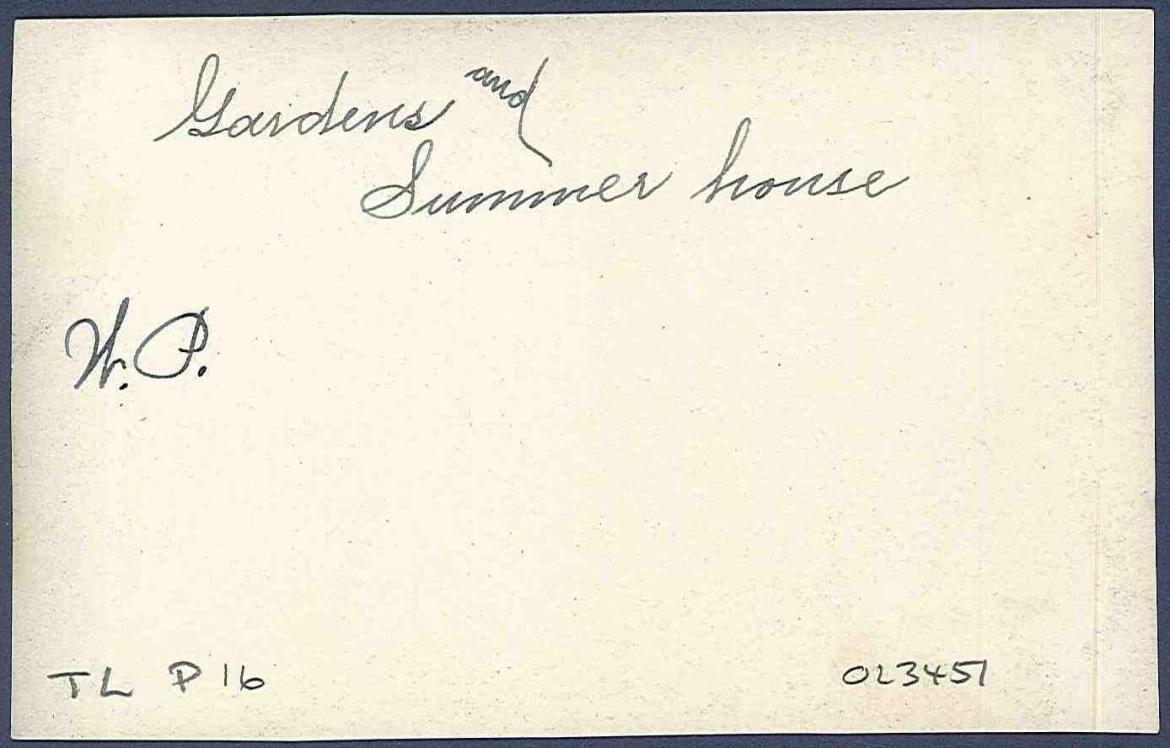 Gardens and
Summer house
W. P.
TL P16
023451